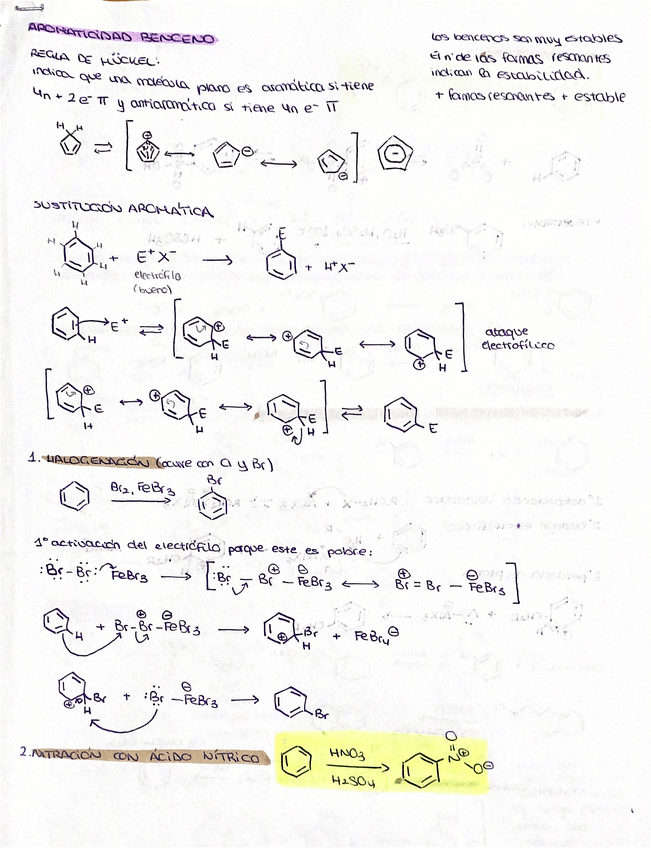 AROMATICIDAD BENCENO
REGLA DE HÜCKEL:
indica que una molécula plana es aromática si tiene
4n + 2 e⁻ π y antiaromática si tiene 4n e⁻ π
Los bencenos son muy estables
El nº de las formas resonantes
indican la estabilidad.
+ formas resonantes + estable
H H
⇌ [ ⊖ ↔ ⊖ ↔ ⊖ ] ⊖
SUSTITUCIÓN AROMÁTICA
H H H H H H + E⁺X⁻ → E + H⁺X⁻
electrófilo
(bueno)
H E⁺ ⇌ [ ⊕ E H ↔ ⊕ E H ↔ ⊕ E H ] ataque
electrofílico
[ ⊕ E H ↔ ⊕ E H ↔ ⊕ E H ] ⇌ E
1. HALOGENACIÓN (ocurre con Cl y Br)
Br₂, FeBr₃ → Br
1º activación del electrófilo porque este es pobre:
:Br-Br: FeBr₃ → [ :Br - Br⊕ - FeBr₃⊖ ↔ Br⊕ = Br - FeBr₃⊖ ]
H + Br-Br⊕-FeBr₃⊖ → ⊕ Br H + FeBr₄⊖
⊕ Br H + :Br - FeBr₃⊖ → Br
2. NITRACIÓN CON ÁCIDO NÍTRICO HNO₃ H₂SO₄ → O N⊕ O⊖